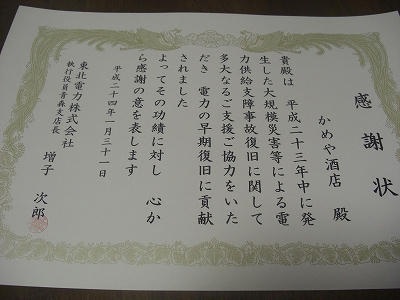 感謝状
かめや酒店 殿
貴殿は 平成二十三年中に発
生した大規模災害等による電
力供給支障事故復旧に関して
多大なるご支援ご協力をいた
だき 電力の早期復旧に貢献
されました
よってその功績に対し 心か
ら感謝の意を表します
平成二十四年一月三十一日
東北電力株式会社
執行役員青森支店長
増子 次郎